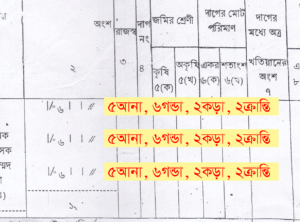 অংশ রাজস্ব দাগ নং জমির শ্রেণী দাগের মোট পরিমাণ দাগের মধ্যে অত্র খতিয়ানের অংশ
কৃষি অকৃষি একর শতাংশ
২ ৩ ৪ ৫(ক) ৫(খ) ৬(ক) ৬(খ) ৭
৫আনা, ৬গন্ডা, ২কড়া, ২ক্রান্তি
৫আনা, ৬গন্ডা, ২কড়া, ২ক্রান্তি
৫আনা, ৬গন্ডা, ২কড়া, ২ক্রান্তি